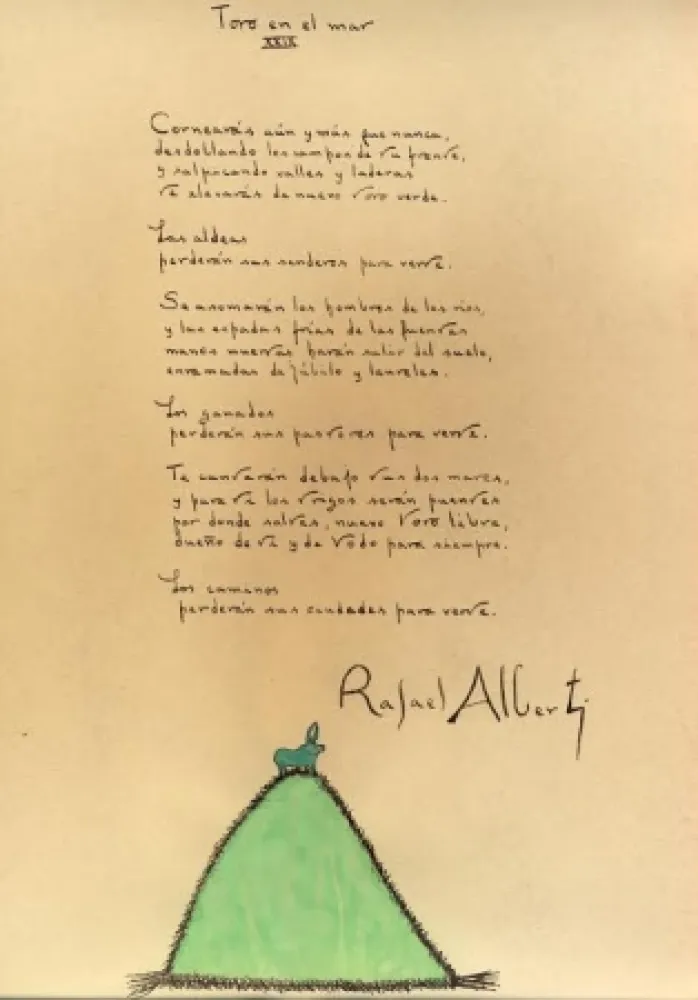 Toro en el mar
XXIX
Cornearás aún y más que nunca,
desdoblando los campos de tu frente,
y salpicando valles y laderas
te elevarás de nuevo toro verde.
Las aldeas
perderán sus senderos para verte.
Se asomarán los hombres de los ríos,
y las espadas frías de las fuentes
manos muertas harán salir del suelo,
enramadas de júbilo y laureles.
Los ganados
perderán sus pastores para verte.
Te cantarán debajo tus dos mares,
y para ti los trigos serán puentes
por donde saltes, nuevo toro libre,
dueño de ti y de todo para siempre.
Los caminos
perderán sus ciudades para verte.
Rafael Alberti